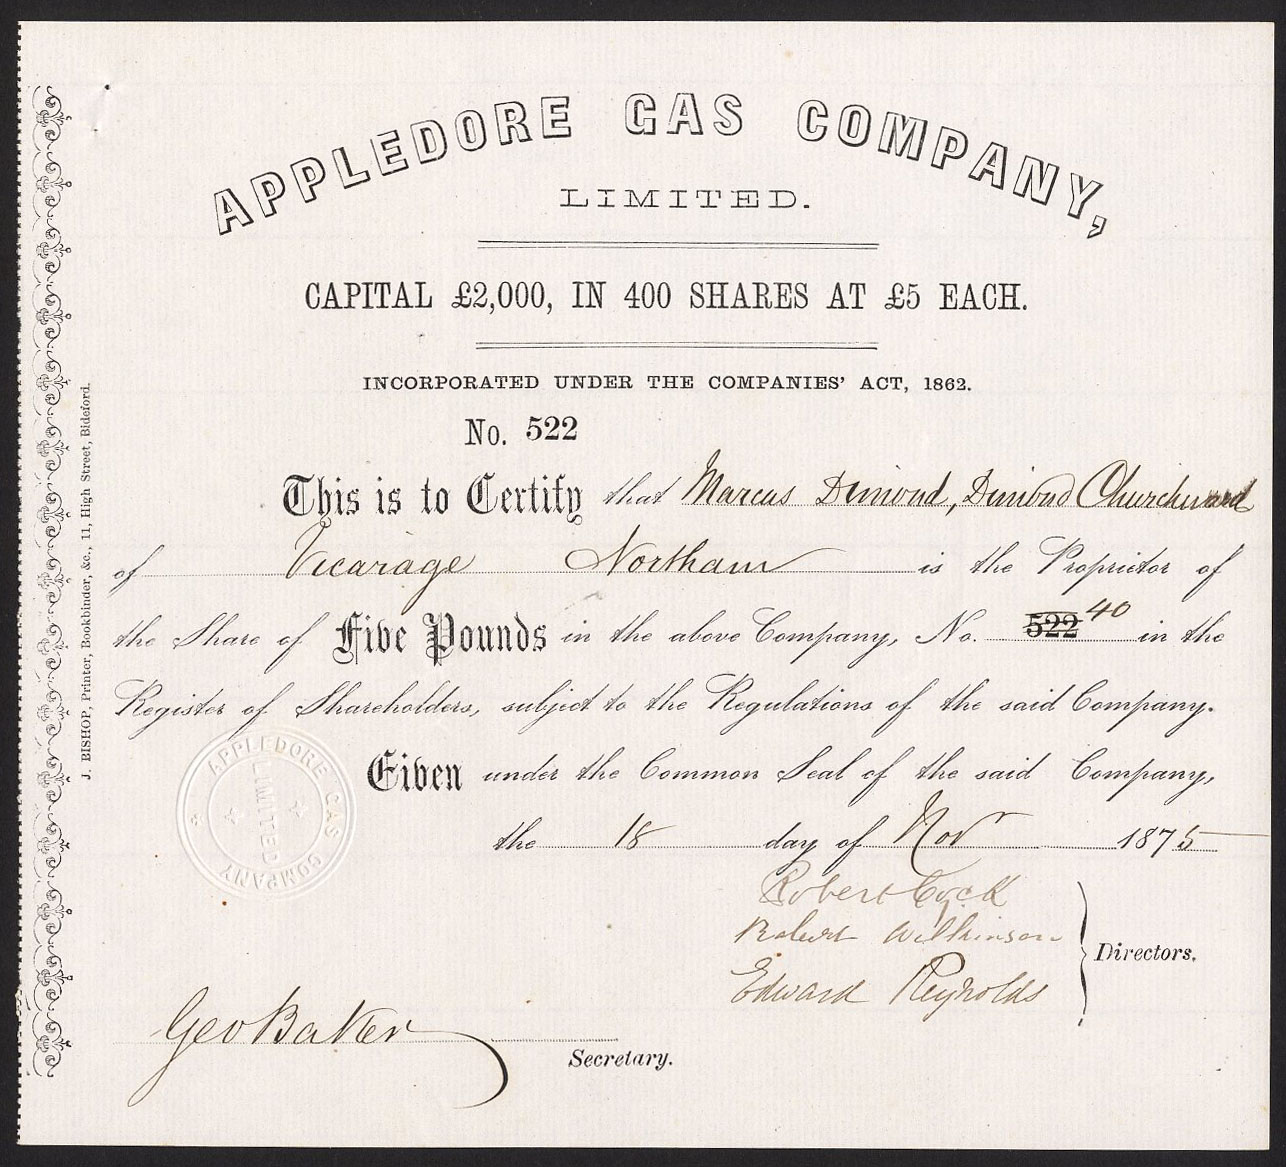 APPLEDORE GAS COMPANY,
LIMITED.
CAPITAL £2,000, IN 400 SHARES AT £5 EACH.
INCORPORATED UNDER THE COMPANIES' ACT, 1862.
No. 522
This is to Certify that Marcus Dimond, Dimond Churchward
of Vicarage Northam is the Proprietor of
the Share of Five Pounds in the above Company, No. 522 40 in the
Register of Shareholders, subject to the Regulations of the said Company.
Given under the Common Seal of the said Company,
the 18 day of Novr 1875
APPLEDORE GAS COMPANY
LIMITED
Robert Cock
Robert Wilkinson
Edward Reynolds
Directors.
Geo Baker
Secretary.
J. BISHOP, Printer, Bookbinder, &c., 11, High Street, Bideford.